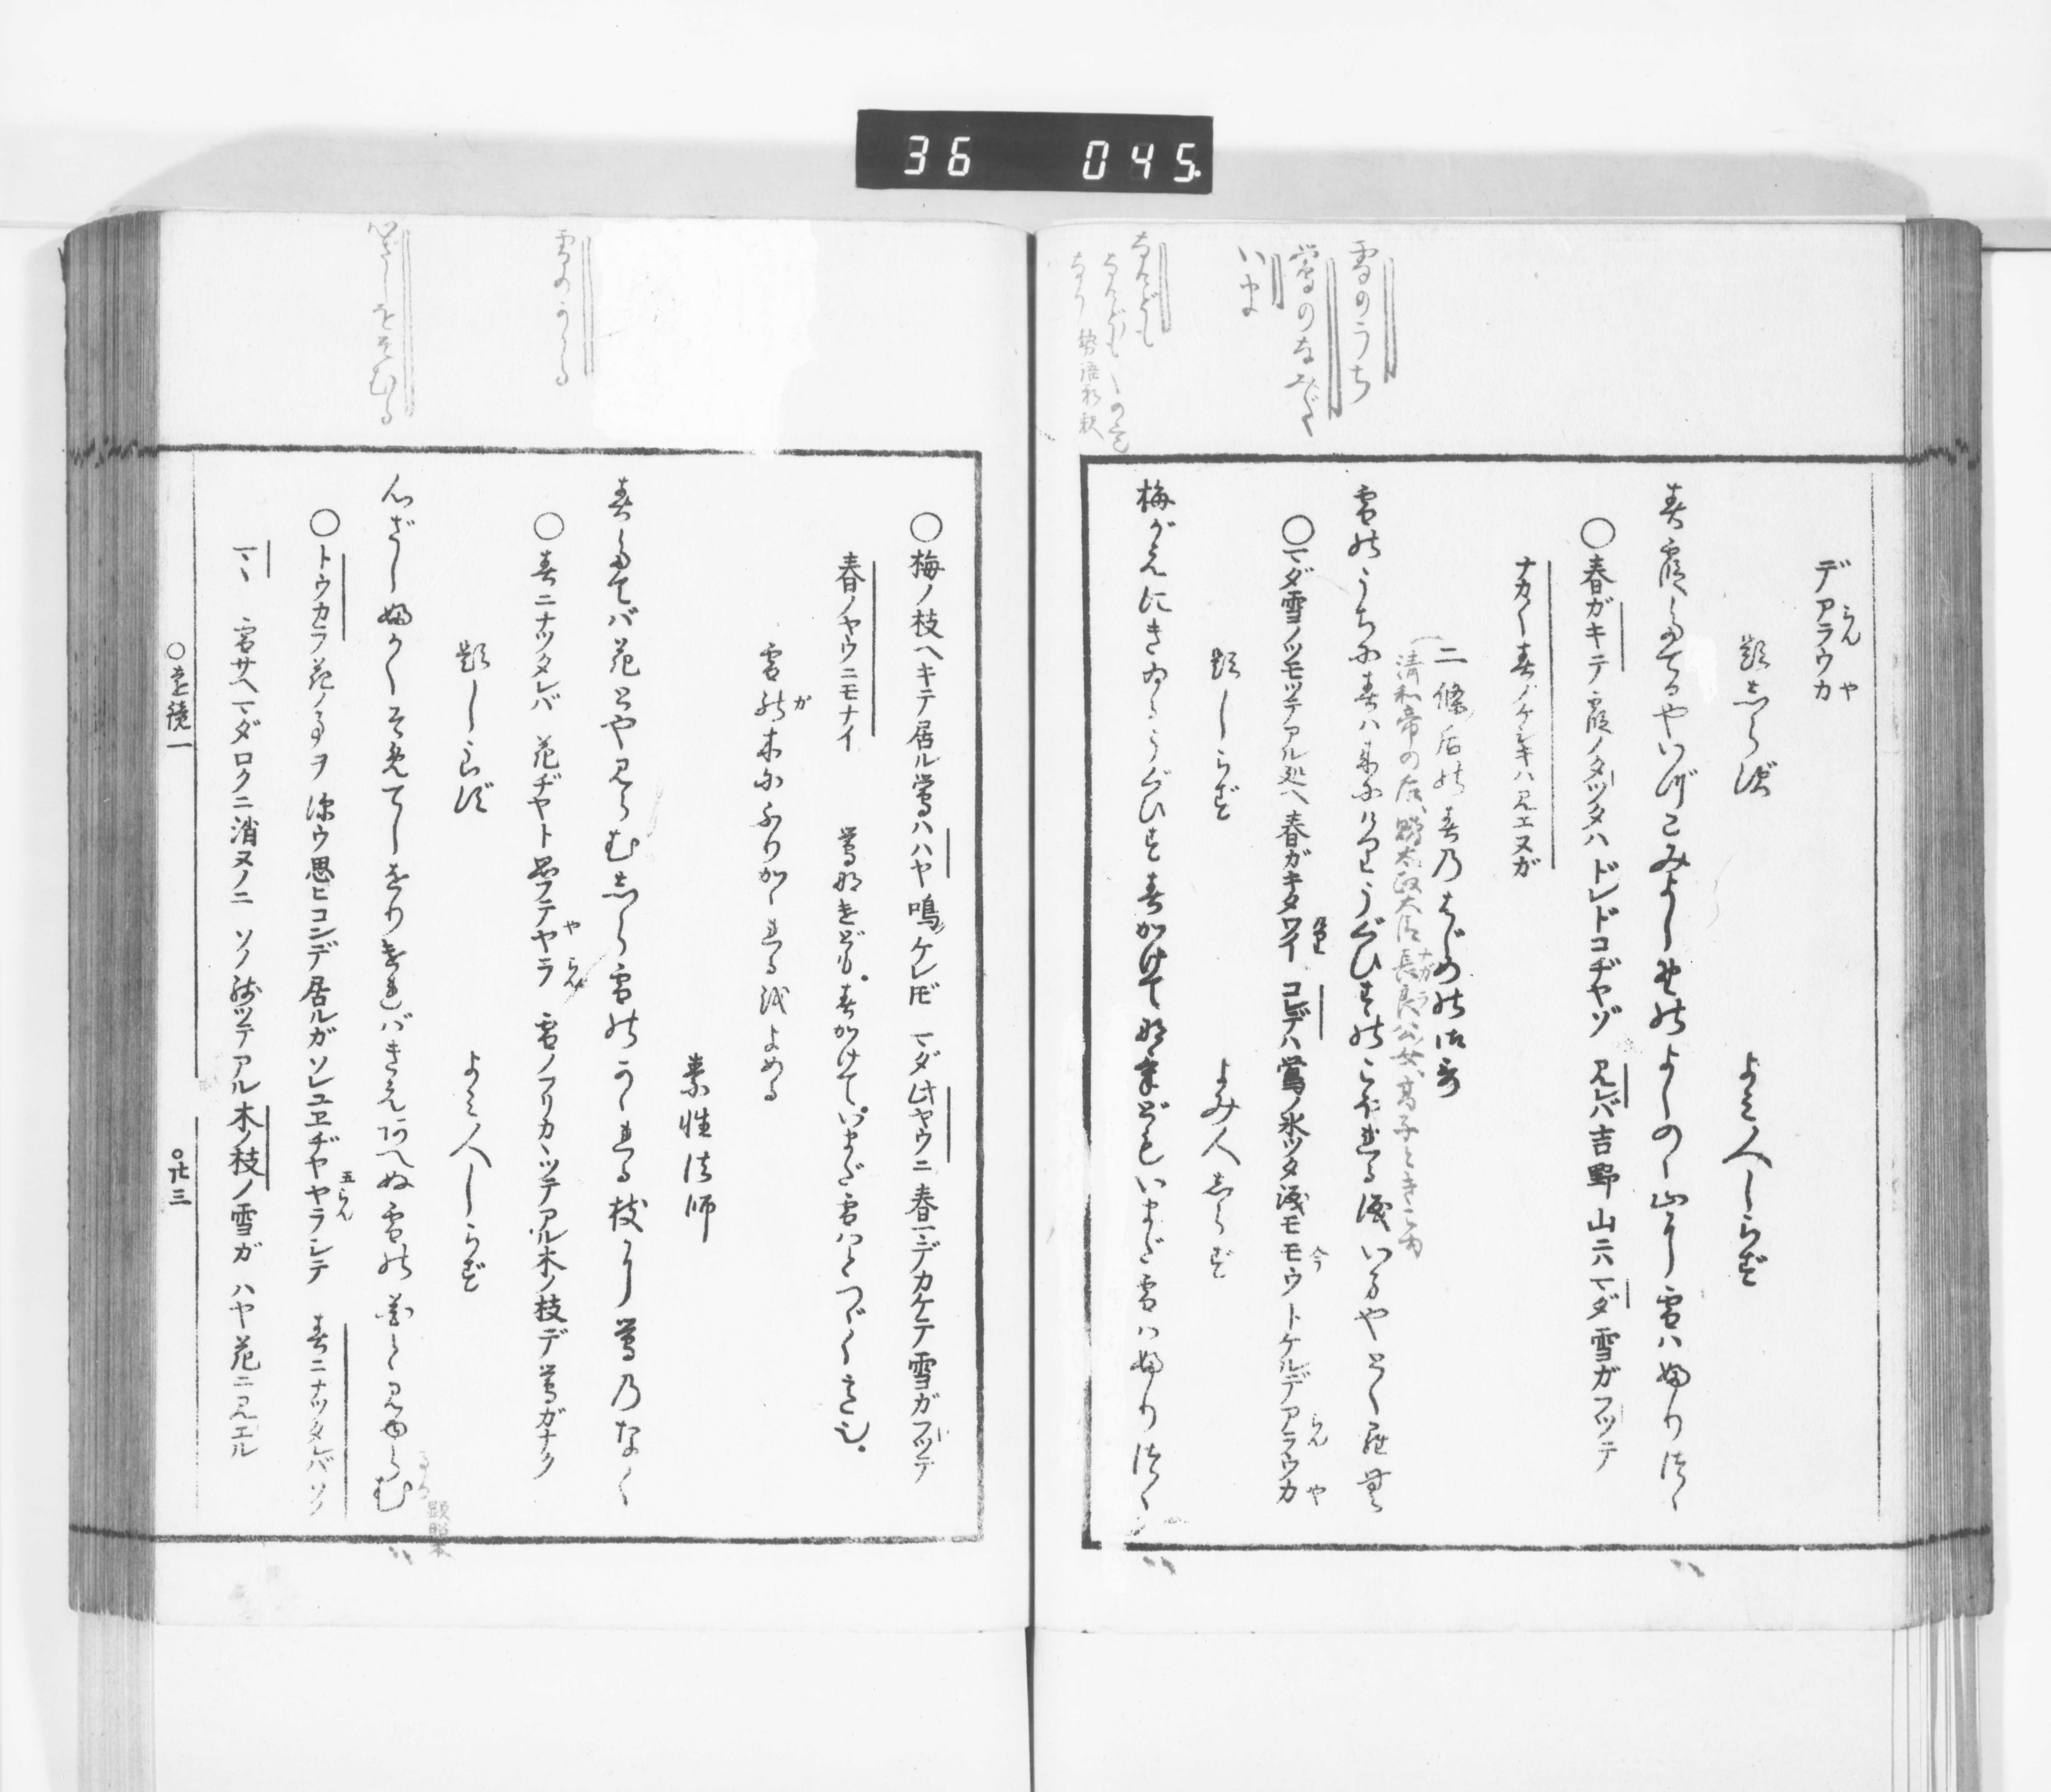 36 045.
雪のうち
鶯のなみだ
いま
なけども
デアラウカ
らん や
題しらず
よみ人しらず
春霞たてるやいづこみよしのゝよしのゝ山に雪はふりつゝ
○春ガキテ霞ノタツタハ ドレドコヂヤゾ 見レバ吉野山ニハマダ雪ガフツテ
ナカ〳〵春ノケシキハ見エヌガ
二條后の春のはじめの御哥
雪のうちに春は来にけりうぐひすのこほれる涙いまやとくらむ
○マダ雪ノツモツテアル処ヘ春ガキタワイ コレデハ鶯ノ氷ツタ涙モモウトケルデアラウカ
けり 今 らん や
題しらず
よみ人しらず
梅がえにきゐるうぐひす春かけてなけどもいまだ雪はふりつゝ
雪のかゝる
心ざし
そむる
○梅ノ枝ヘキテ居ル鶯ハハヤ鳴ケレドモ マダ此ヤウニ春マデカケテ雪ガフツテ
春ノヤウニモナイ
鶯なけども。春かけていまだ雪はとつゞく意也。
雪の木にふりかゝれるをよめる
が
素性法師
春たてば花とや見らむしら雪のかゝれる枝に鶯のなく
○春ニナツタレバ 花ヂヤト思フテヤラ 雪ノフリカヽツテアル木ノ枝デ鶯ガナク
や らん
題しらず
よみ人しらず
心ざしふかくそめてしをりければきえあへぬ雪の花と見ゆらむ
○トウカラ花ノ事ヲ深ウ思ヒコンデ居ルガソレユヱヂヤヤラシテ 春ニナツタレバソノ
五らん
マヽ 雪サヘマダロクニ消ヌノニ ソノ残ツテアル木ノ枝ノ雪ガ ハヤ花ニ見エル
○遠鏡一
○廿三